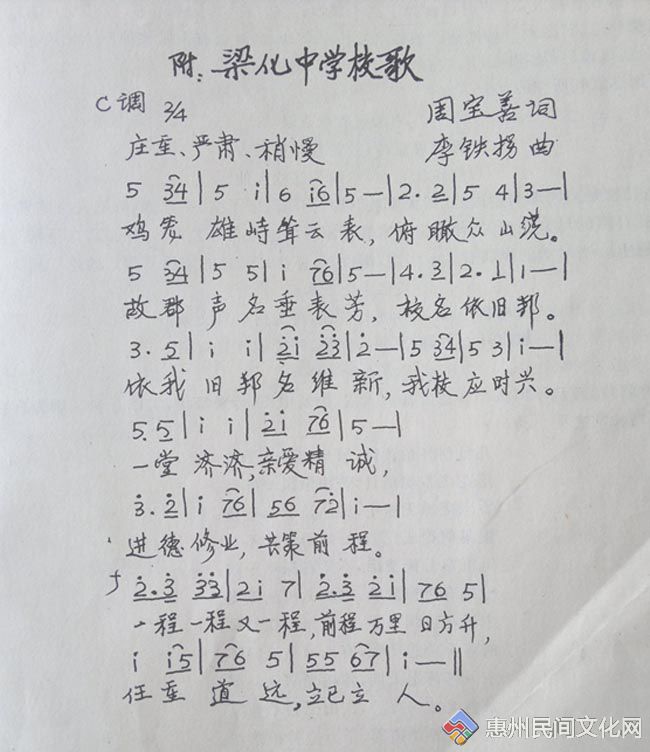 附：梁化中学校歌
C调 2/4 周宝善词
庄重、严肃、稍慢 李铁拐曲
5 34 | 5 i | 6 i6 | 5 — | 2. 2 | 5 4 | 3 — |
鸡笼 雄峙耸云表，俯瞰众山尧。
5 34 | 5 5 | i 76 | 5 — | 4. 3 | 2. 1 | 1 — |
故郡 声名垂表芳，校名依旧邦。
3. 5 | i i | 2̇i 2̇3̇ | 2̇ — | 5 34 | 5 3 | i — |
依我 旧邦名维新，我校应时兴。
5. 5 | i i | 2̇i 76 | 5 — |
一堂 济济，亲爱精 诚，
3̇. 2̇ | i 76 | 56 72̇ | i — |
进德修业，共策前程。
2̇. 3̇ 3̇3̇ | 2̇i 7 | 2̇. 3̇ 2̇i | 76 5 |
一程一程又一程，前程万里日方升，
i i5 | 76 5 | 55 67 | i — ‖
任重 道远，立己立人。
惠州民间文化网